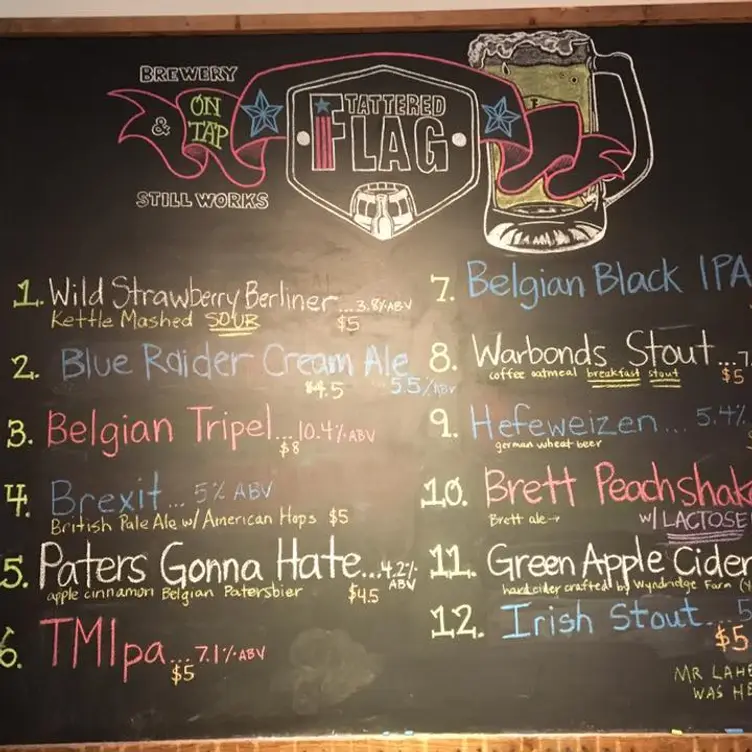 BREWERY
& ON TAP
STILL WORKS
TATTERED
FLAG
1. Wild Strawberry Berliner...3.8% ABV
Kettle Mashed SOUR $5
2. Blue Raider Cream Ale
$4.5 5.5% ABV
3. Belgian Tripel...10.4% ABV
$8
4. Brexit...5% ABV
British Pale Ale w/ American Hops $5
5. Paters Gonna Hate...4.2% ABV
apple cinnamon Belgian Patersbier $4.5
6. TMIpa...7.1% ABV
$5
7. Belgian Black IPA
8. Warbonds Stout...7.
coffee oatmeal breakfast stout $5
9. Hefeweizen...5.4%
german wheat beer
10. Brett Peachshak
Brett ale→ w/ LACTOSE
11. Green Apple Cider
hard cider crafted by Wyndridge Farm
12. Irish Stout...5
$5
MR LAHE
WAS HE